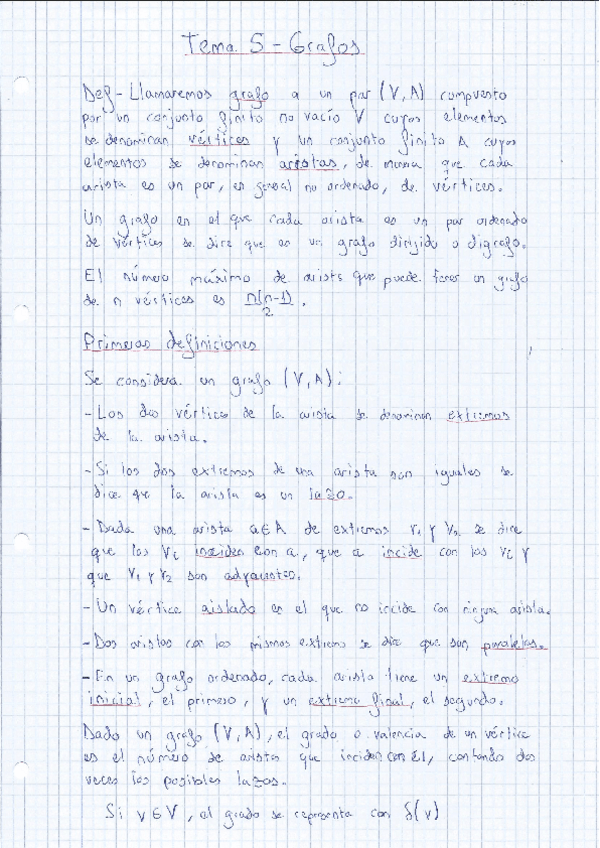 Tema 5 - Grafos
Def - Llamaremos grafo a un par (V, A) compuesto
por un conjunto finito no vacío V cuyos elementos
se denominan vértices y un conjunto finito A cuyos
elementos se denominan aristas, de manera que cada
arista es un par, en general no ordenado, de vértices.
Un grafo en el que cada arista es un par ordenado
de vértices se dice que es un grafo dirigido o digrafo.
El número máximo de arists que puede tener un grafo
de n vértices es n(n-1)/2.
Primeras definiciones
Se considera un grafo (V, A):
- Los dos vértices de la arista se denominan extremos
de la arista.
- Si los dos extremos de una arista son iguales se
dice que la arista es un lazo.
- Dada una arista a∈A de extremos v₁ y v₂ se dice
que los vᵢ inciden con a, que a incide con los vᵢ y
que v₁ y v₂ son adyacentes.
- Un vértice aislado es el que no incide con ninguna arista.
- Dos aristas con los mismos extremos se dice que son paralelas.
- En un grafo ordenado, cada arista tiene un extremo
inicial, el primero, y un extremo final, el segundo.
Dado un grafo (V, A), el grado o valencia de un vértice
es el número de aristas que inciden con él, contando dos
veces los posibles lazos.
Si v∈V, el grado se representa con δ(v)